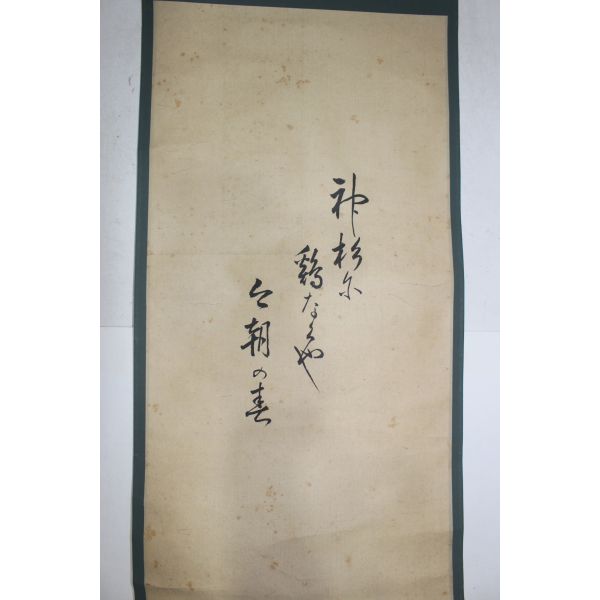 神杉尓
鶏なくや
今朝の春